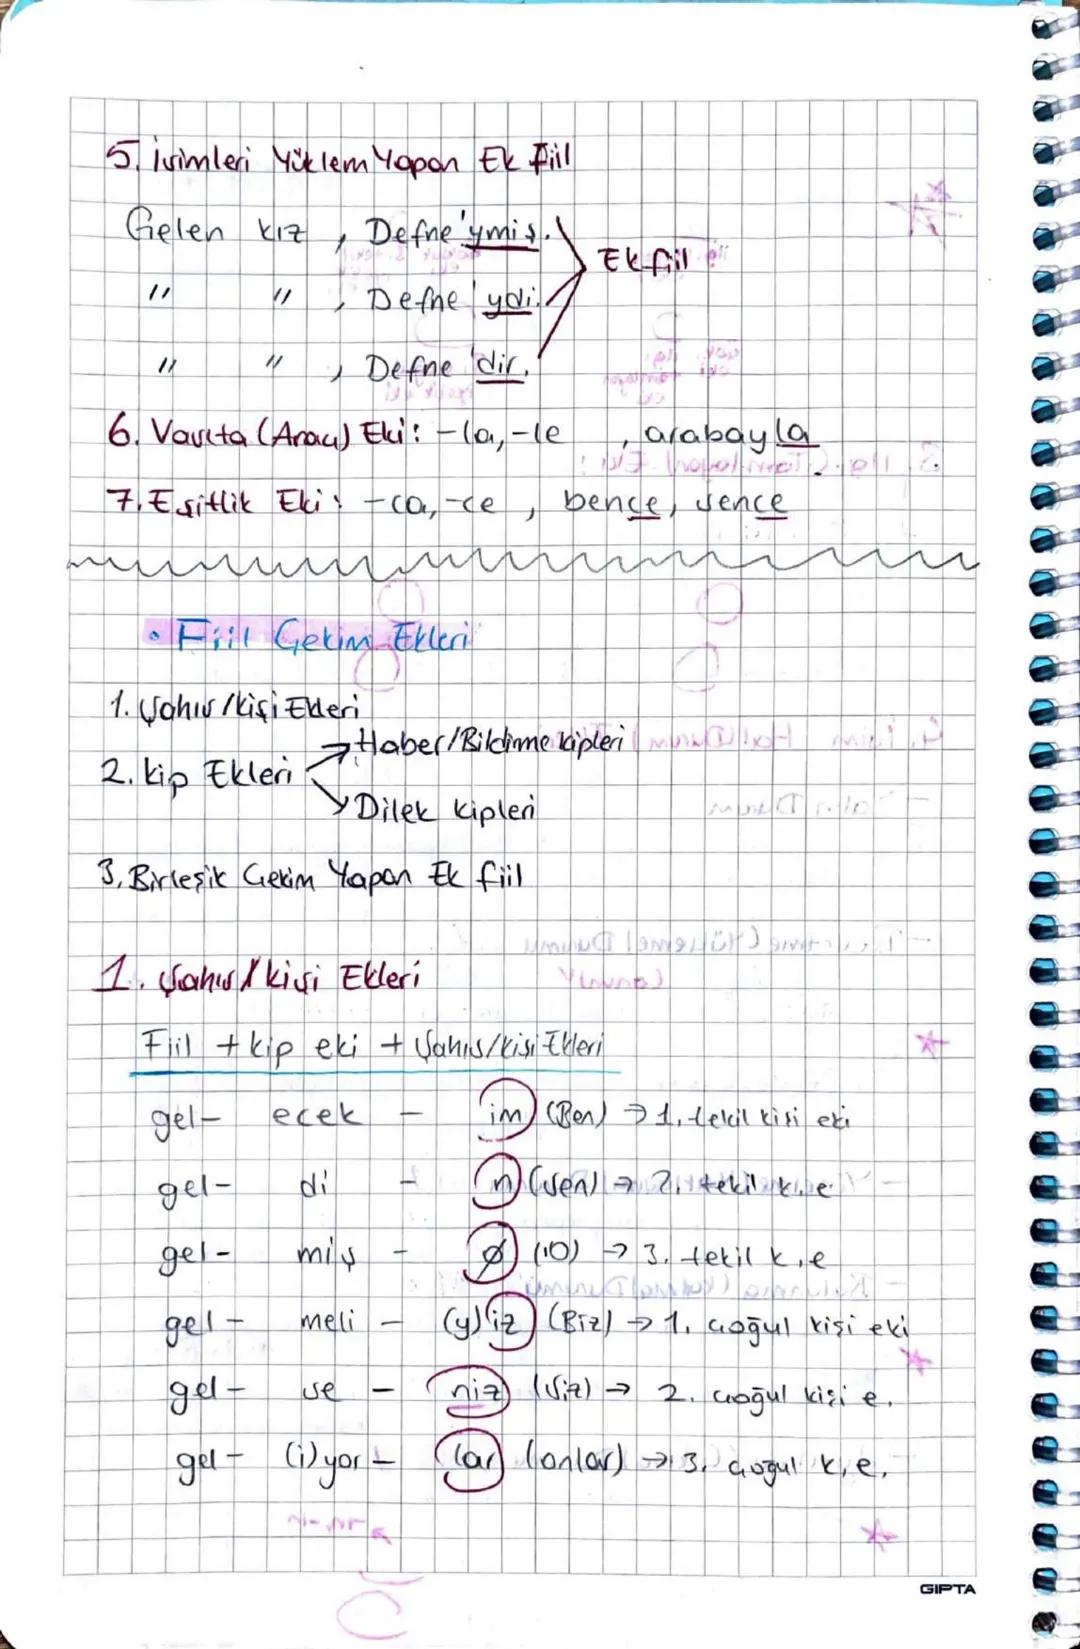 5. İsimleri Yüklem Yapan Ek Fiil
Gelen kız , Defne'ymiş.
Ek fiil
" " , Defne'ydi.
" " , Defne'dir.
6. Vasıta (Araç) Eki: -la, -le , arabayla
7. Eşitlik Eki: -ca, -ce , bence, sence
• Fiil Çekim Ekleri
1. Şahıs/kişi Ekleri
2. Kip Ekleri → Haber/Bildirme kipleri
→ Dilek kipleri
3. Birleşik Çekim Yapan Ek fiil
1. Şahıs/kişi Ekleri
Fiil + kip eki + Şahıs/kişi Ekleri
gel- ecek - im (Ben) → 1. tekil kişi eki
gel- di - n (sen) → 2. tekil k.e
gel- miş - ø (O) → 3. tekil k.e
gel- meli - (y)iz (Biz) → 1. çoğul kişi eki
gel- se - niz (Siz) → 2. çoğul kişi e.
gel- (i)yor - lar (onlar) → 3. çoğul k.e.
GIPTA